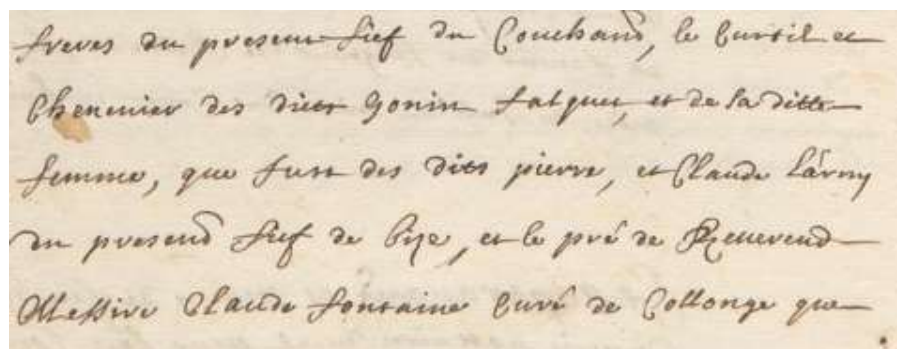 freres du present fief du Couchand, le Curtil et
Chenevier des dicts Gonin falquet, et de la ditte
femme, que furent des dits pierre, et Claude Larmy
du present fief de bise, et le pré de Reverend
Messire Claude fontaine Curé de Collonge que